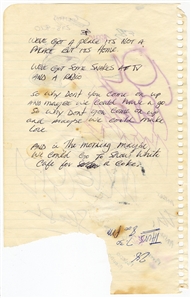 WE'VE GOT A PLACE IT'S NOT A
PALACE BUT IT'S HOME
WE'VE GOT SOME SMOKES A TV
AND A RADIO
SO WHY DON'T YOU COME ON UP
AND maybe we could make a go
So why Don't you come on up
and maybe we could make
Love
AND in The morning maybe
We could Go To Snow White
Cafe for a cokes
28